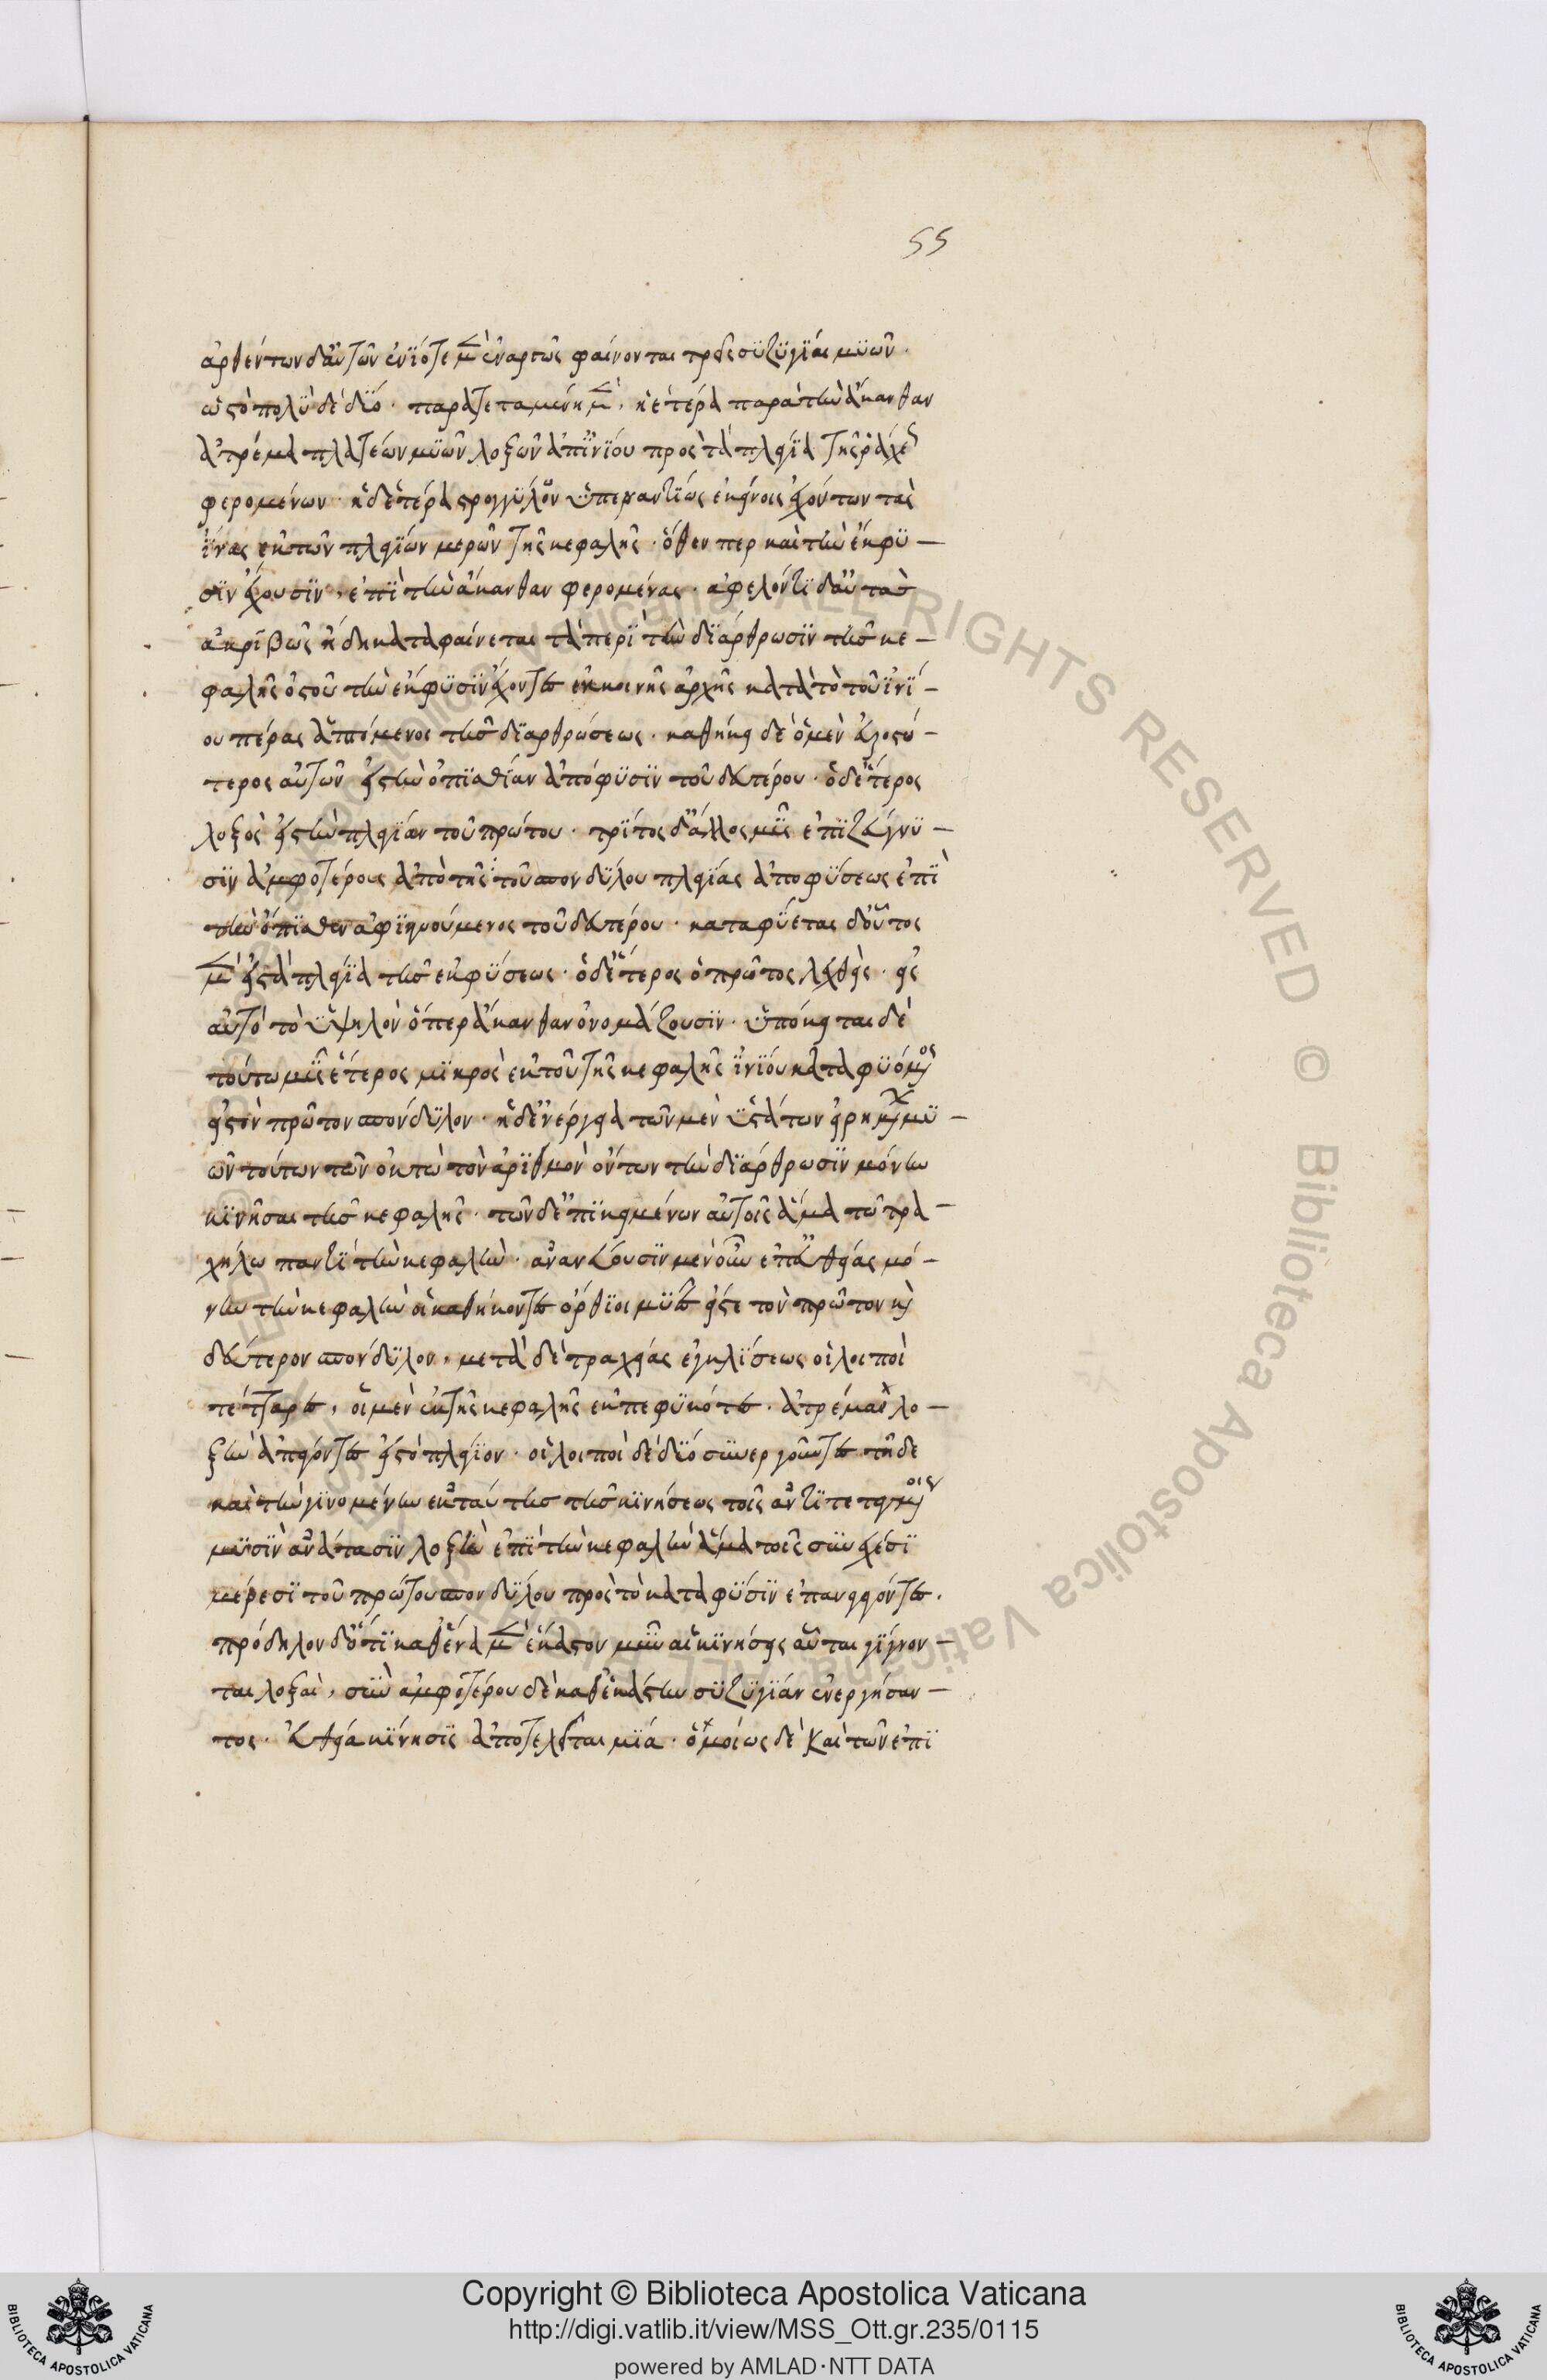 55
ἀρθέντων δ' αὐτῶν ἐνίοτε μὲν ἐναργῶς φαίνονται τρεῖς συζυγίαι μυῶν.
ὡς τὸ πολὺ δὲ δύο. παρατεταμένη μὲν, ἡ ἑτέρα παρὰ τὴν ἄκανθαν
ἀτρέμα πλατέων μυῶν λοξῶν ἀπ' ἰνίου πρὸς τὰ πλάγια τῆς ῥάχεως
φερομένων. ἡ δ' ἑτέρα στρογγύλων ὑπεναντίως ἐκείνοις ἐχόντων τὰς
ἶνας ἐκ τῶν πλαγίων μερῶν τῆς κεφαλῆς. ὅθεν περ καὶ τὴν ἔκφυ –
σιν ἔχουσιν, ἐπὶ τὴν ἄκανθαν φερομένας. ἀφελόντι δ' αὐτὰς
ἀκριβῶς ἤδη καταφαίνεται τὰ περὶ τὴν διάρθρωσιν τῆς κε –
φαλῆς
ου πέρας ἁπτόμενος τῆς διαρθρώσεως. καθήκει δὲ ὁ μὲν
τερος αὐτῶν εἰς τὴν ὀπισθίαν ἀπόφυσιν τοῦ δευτέρου. ὁ δ' ἕτερος
λοξὸς εἰς τὴν πλαγίαν τοῦ πρώτου. τρίτος δ' ἄλλος μῦς ἐπιζεύγνυ –
σιν ἀμφοτέρους ἀπὸ τῆς τοῦ σπονδύλου πλαγίας ἀποφύσεως ἐπὶ
τὴν ὄπισθεν ἀφικνούμενος τοῦ δευτέρου. καταφύεται δ' οὗτος
μὲν εἰς τὰ πλάγια τῆς ἐκφύσεως. ὁ δ' ἕτερος ὁ πρῶτος λεχθεὶς. εἰς
αὐτὸ τὸ ὑψηλὸν ὅπερ ἄκανθαν ὀνομάζουσιν. ὑπόκειται δὲ
τούτῳ μῦς ἕτερος μικρὸς ἐκ τοῦ τῆς κεφαλῆς ἰνίου καταφυόμενος
εἰς τὸν πρῶτον σπόνδυλον. ἡ δ' ἐνέργεια τῶν μὲν ὑστάτων εἰρημένων μυ –
ῶν τούτων τῶν ὀκτὼ τὸν ἀριθμὸν ὄντων τὴν διάρθρωσιν μόνην
κινῆσαι τῆς κεφαλῆς. τῶν δ' ἐπικειμένων αὐτοῖς ἅμα τῷ τρα –
χήλῳ παντὶ τὴν κεφαλὴν. ἀνανεύουσιν μὲν οὖν ἐπ' εὐθείας μό –
νην τὴν κεφαλὴν οἱ καθήκοντες ὄρθιοι μύες εἴς τε τὸν πρῶτον καὶ
δεύτερον σπόνδυλον, μετὰ δὲ βραχείας ἐγκλίσεως οἱ λοιποὶ
τέτταρες, οἱ μὲν ἐκ τῆς κεφαλῆς ἐκπεφυκότες. ἀτρέμα λο –
ξὴν ἀπάγοντες εἰς τὸ πλάγιον. οἱ λοιποὶ δὲ δύο συνεργοῦντες τῇδε
καὶ τὴν γινομένην ἐκ ταύτης τῆς κινήσεως τοῖς ἀντιτεταγμένοις
μυσὶν ἀνάτασιν λοξὴν ἐπὶ τὴν κεφαλὴν ἅμα τοῖς συνεχέσι
μέρεσι τοῦ πρώτου σπονδύλου πρὸς τὸ κατὰ φύσιν ἐπανάγοντες.
πρόδηλον δ' ὅτι καθ' ἕνα μὲν ἕκαστον μῦν αἱ κινήσεις αὗται γίγνον –
ται λοξαὶ, σὺν ἀμφοτέρου δὲ καθ' ἑκάστην συζυγίαν ἐνεργήσαν –
τος. εὐθεῖα κίνησις ἀποτελεῖται μία. ὁμοίως δὲ καὶ τῶν ἐπι
Copyright © Biblioteca Apostolica Vaticana
http://digi.vatlib.it/view/MSS_Ott.gr.235/0115
powered by AMLAD·NTT DATA